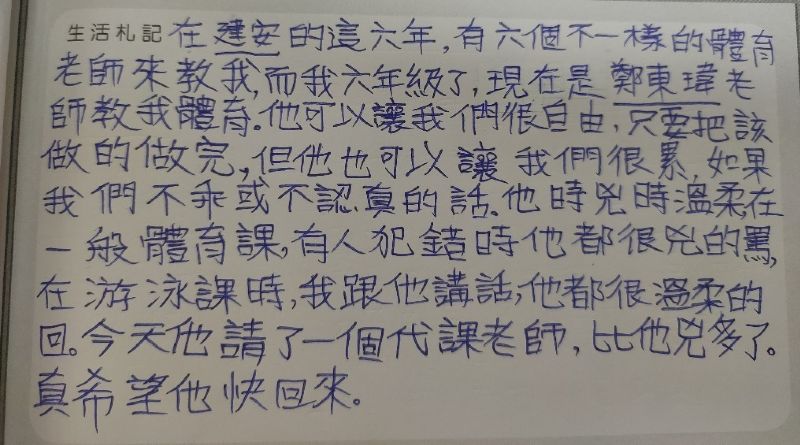 生活札記 在建安的這六年,有六個不一樣的體育
老師來教我,而我六年級了,現在是鄭東瑋老
師教我體育。他可以讓我們很自由,只要把該
做的做完,但他也可以讓我們很累,如果
我們不乖或不認真的話。他時兇時溫柔,在
一般體育課,有人犯錯時他都很兇的罵,
在游泳課時,我跟他講話,他都很溫柔的
回。今天他請了一個代課老師,比他兇多了。
真希望他快回來。